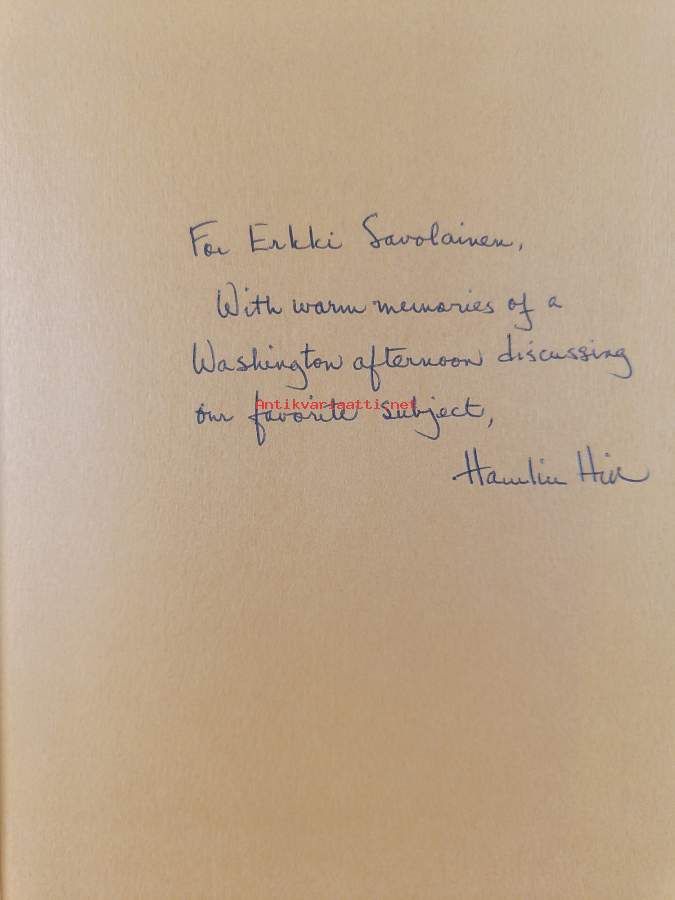 For Erkki Savolainen,
With warm memories of a
Washington afternoon discussing
our favorite subject,
Antikvariaatti.net
Hamlin Hill